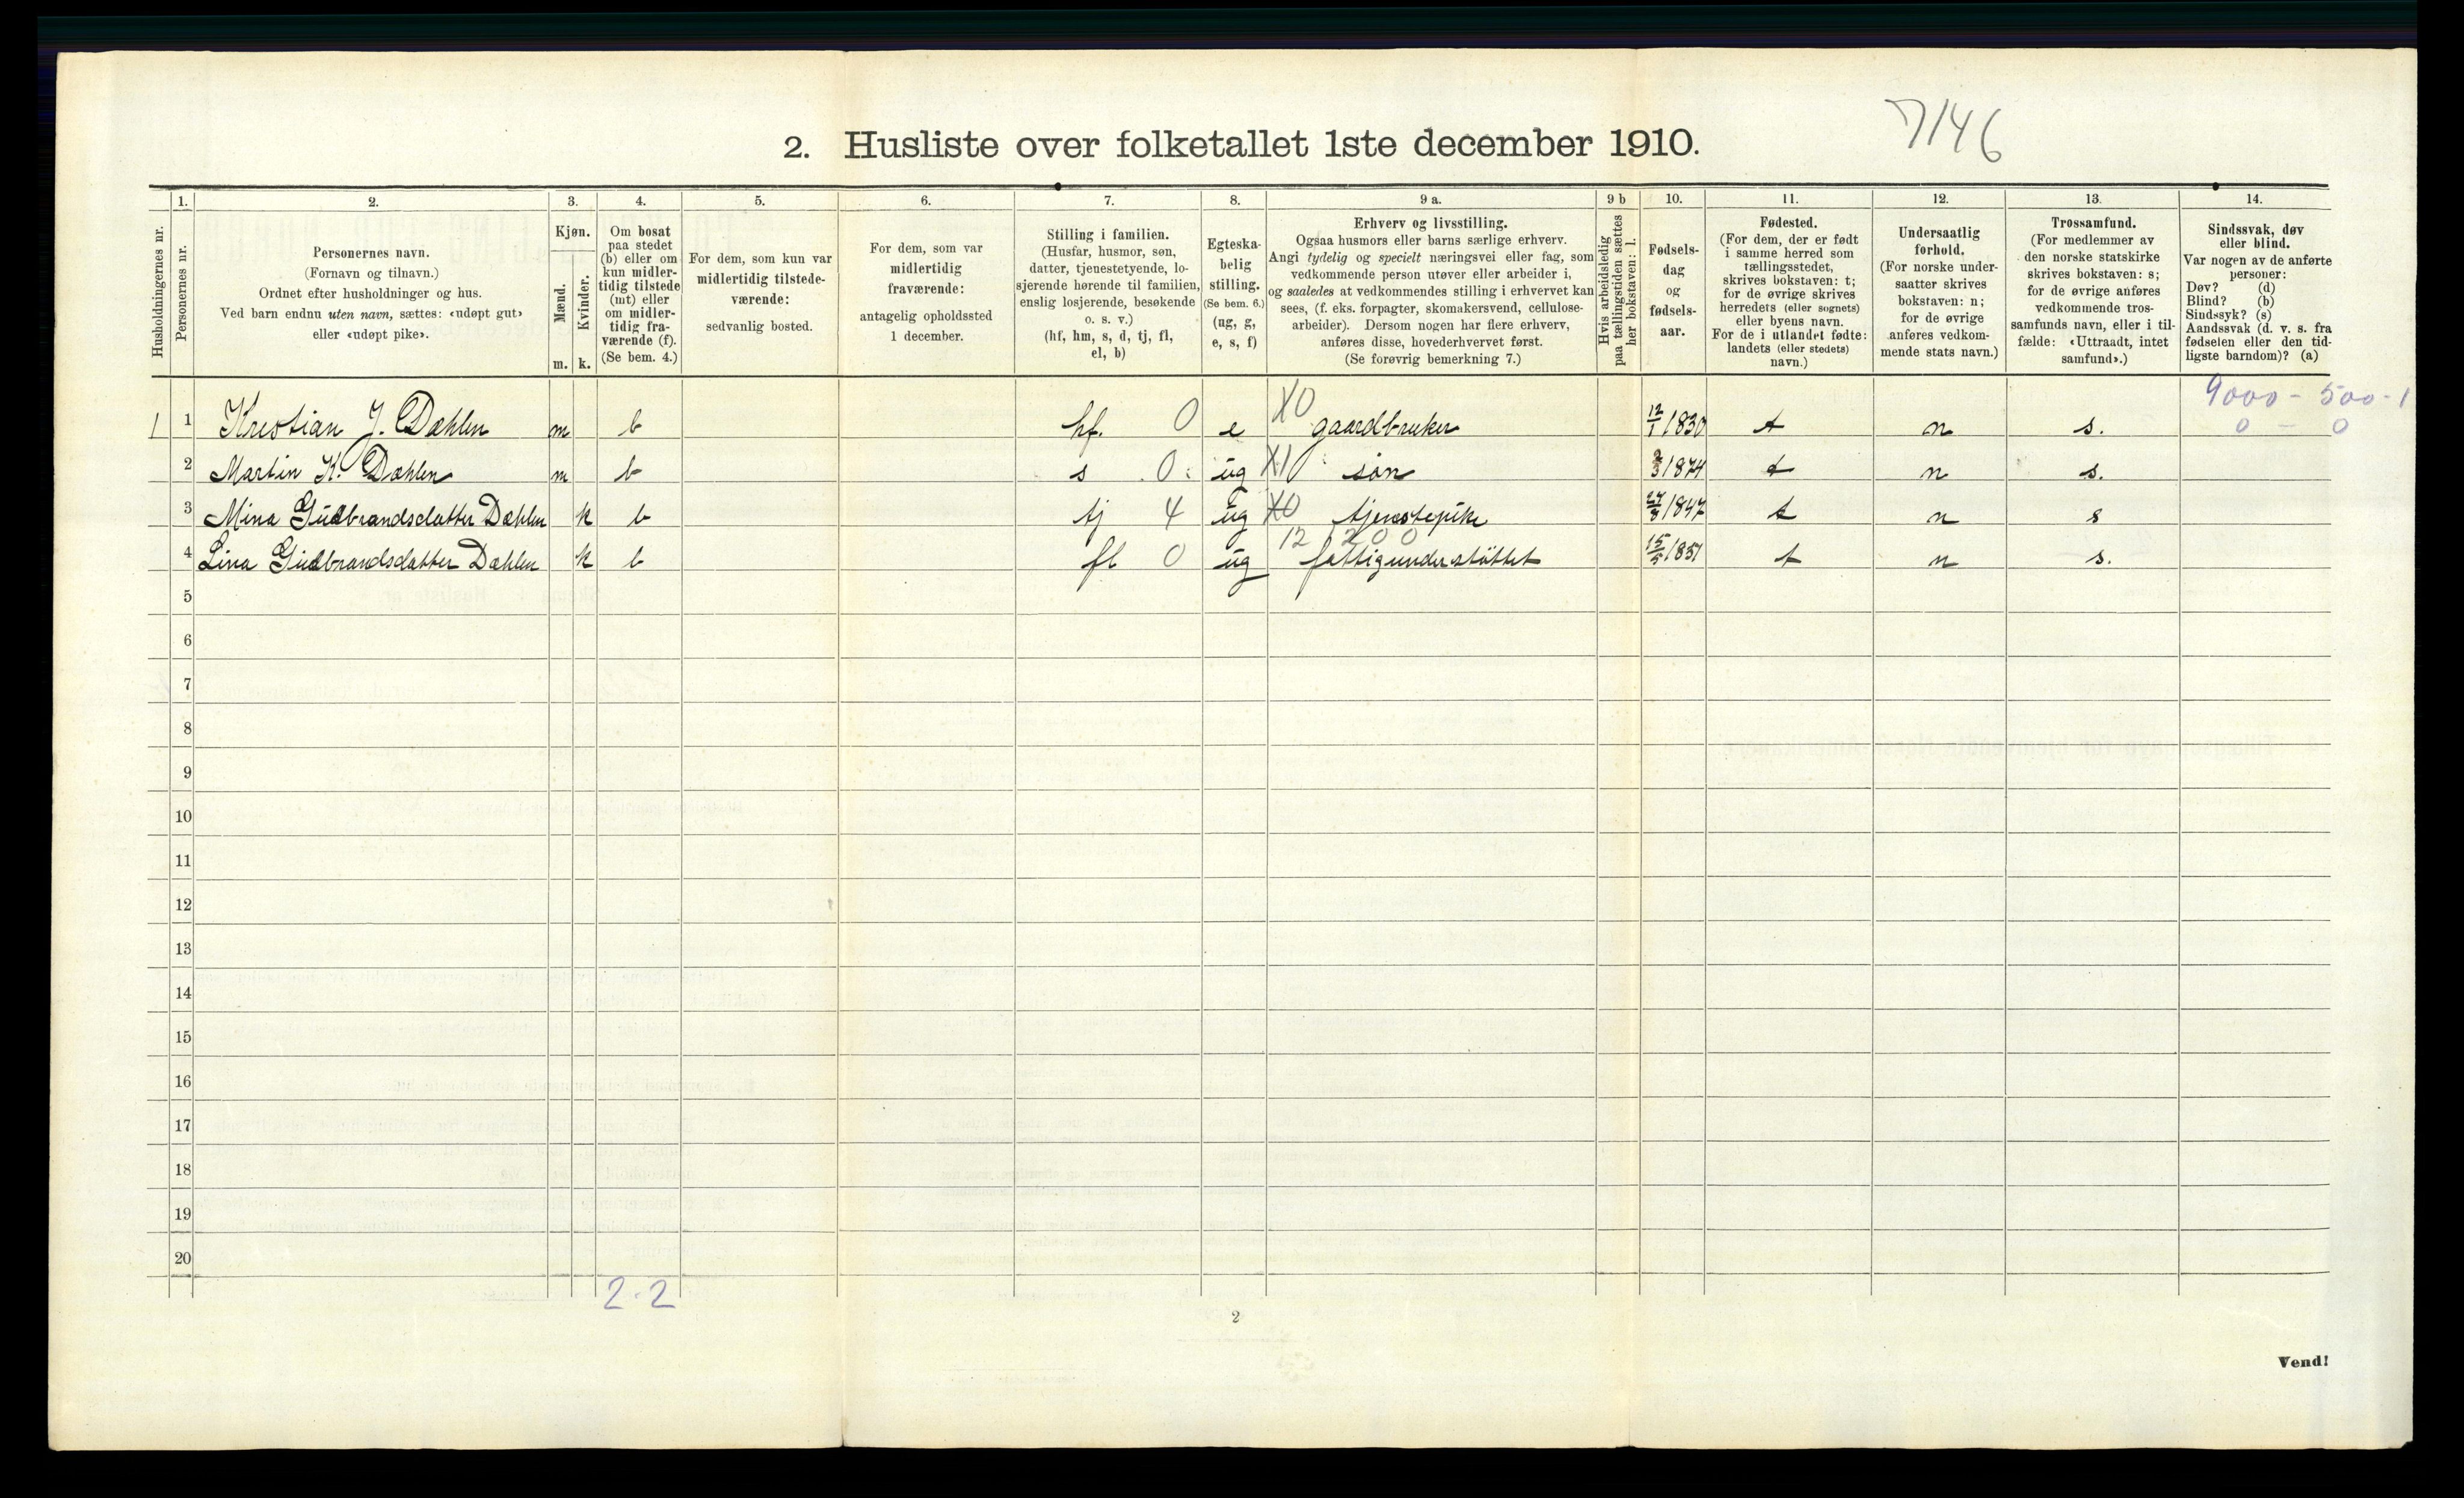 7146
2. Husliste over folketallet 1ste december 1910.
Husholdningernes nr.
1.
Personernes nr.
2.
Personernes navn.
(Fornavn og tilnavn.)
Ordnet efter husholdninger og hus.
Ved barn endnu uten navn, sættes: «udøpt gut»
eller «udøpt pike».
3.
Kjøn.
Mænd.
Kvinder.
m. k.
4.
Om bosat
paa stedet
(b) eller om
kun midler-
tidig tilstede
(mt) eller
om midler-
tidig fra-
værende (f).
(Se bem. 4.)
5.
For dem, som kun var
midlertidig tilstede-
værende:
sedvanlig bosted.
6.
For dem, som var
midlertidig
fraværende:
antagelig opholdssted
1 december.
7.
Stilling i familien.
(Husfar, husmor, søn,
datter, tjenestetyende, lo-
sjerende hørende til familien,
enslig losjerende, besøkende
o. s. v.)
(hf, hm, s, d, tj, fl,
el, b)
8.
Egteska-
belig
stilling.
(Se bem. 6.)
(ug, g,
e, s, f)
9 a.
Erhverv og livsstilling.
Ogsaa husmors eller barns særlige erhverv.
Angi tydelig og specielt næringsvei eller fag, som
vedkommende person utøver eller arbeider i,
og saaledes at vedkommendes stilling i erhvervet kan
sees, (f. eks. forpagter, skomakersvend, cellulose-
arbeider). Dersom nogen har flere erhverv,
anføres disse, hovederhvervet først.
(Se forøvrig bemerkning 7.)
9 b
Hvis arbeidsledig
paa tællingstiden sættes
her bokstaven: l.
10.
Fødsels-
dag
og
fødsels-
aar.
11.
Fødested.
(For dem, der er født
i samme herred som
tællingsstedet,
skrives bokstaven: t;
for de øvrige skrives
herredets (eller sognets)
eller byens navn.
For de i utlandet fødte:
landets (eller stedets)
navn.)
12.
Undersaatlig
forhold.
(For norske under-
saatter skrives
bokstaven: n;
for de øvrige
anføres vedkom-
mende stats navn.)
13.
Trossamfund.
(For medlemmer av
den norske statskirke
skrives bokstaven: s;
for de øvrige anføres
vedkommende tros-
samfunds navn, eller i til-
fælde: «Uttraadt, intet
samfund».)
14.
Sindssvak, døv
eller blind.
Var nogen av de anførte
personer:
Døv? (d)
Blind? (b)
Sindssyk? (s)
Aandssvak (d. v. s. fra
fødselen eller den tid-
ligste barndom)? (a)
9000 - 500 - 1
0 - 0
1 1 Kristian J. Dæhlen m b hf. 0 e X0 gaardbruker 12/1 1830 t n s.
2 Martin K. Dæhlen m b s 0 ug X1 søn 3/3 1874 t n s.
3 Mina Gudbrandsdatter Dæhlen k b tj 4 ug X0 tjenstepike 24/8 1847 t n s
12 1200
4 Lina Gudbrandsdatter Dæhlen k b fl 0 ug fattigunderstøttet 15/5 1851 t n s.
5
6
7
8
9
10
11
12
13
14
15
16
17
18
19
20
2 . 2
2
Vend!